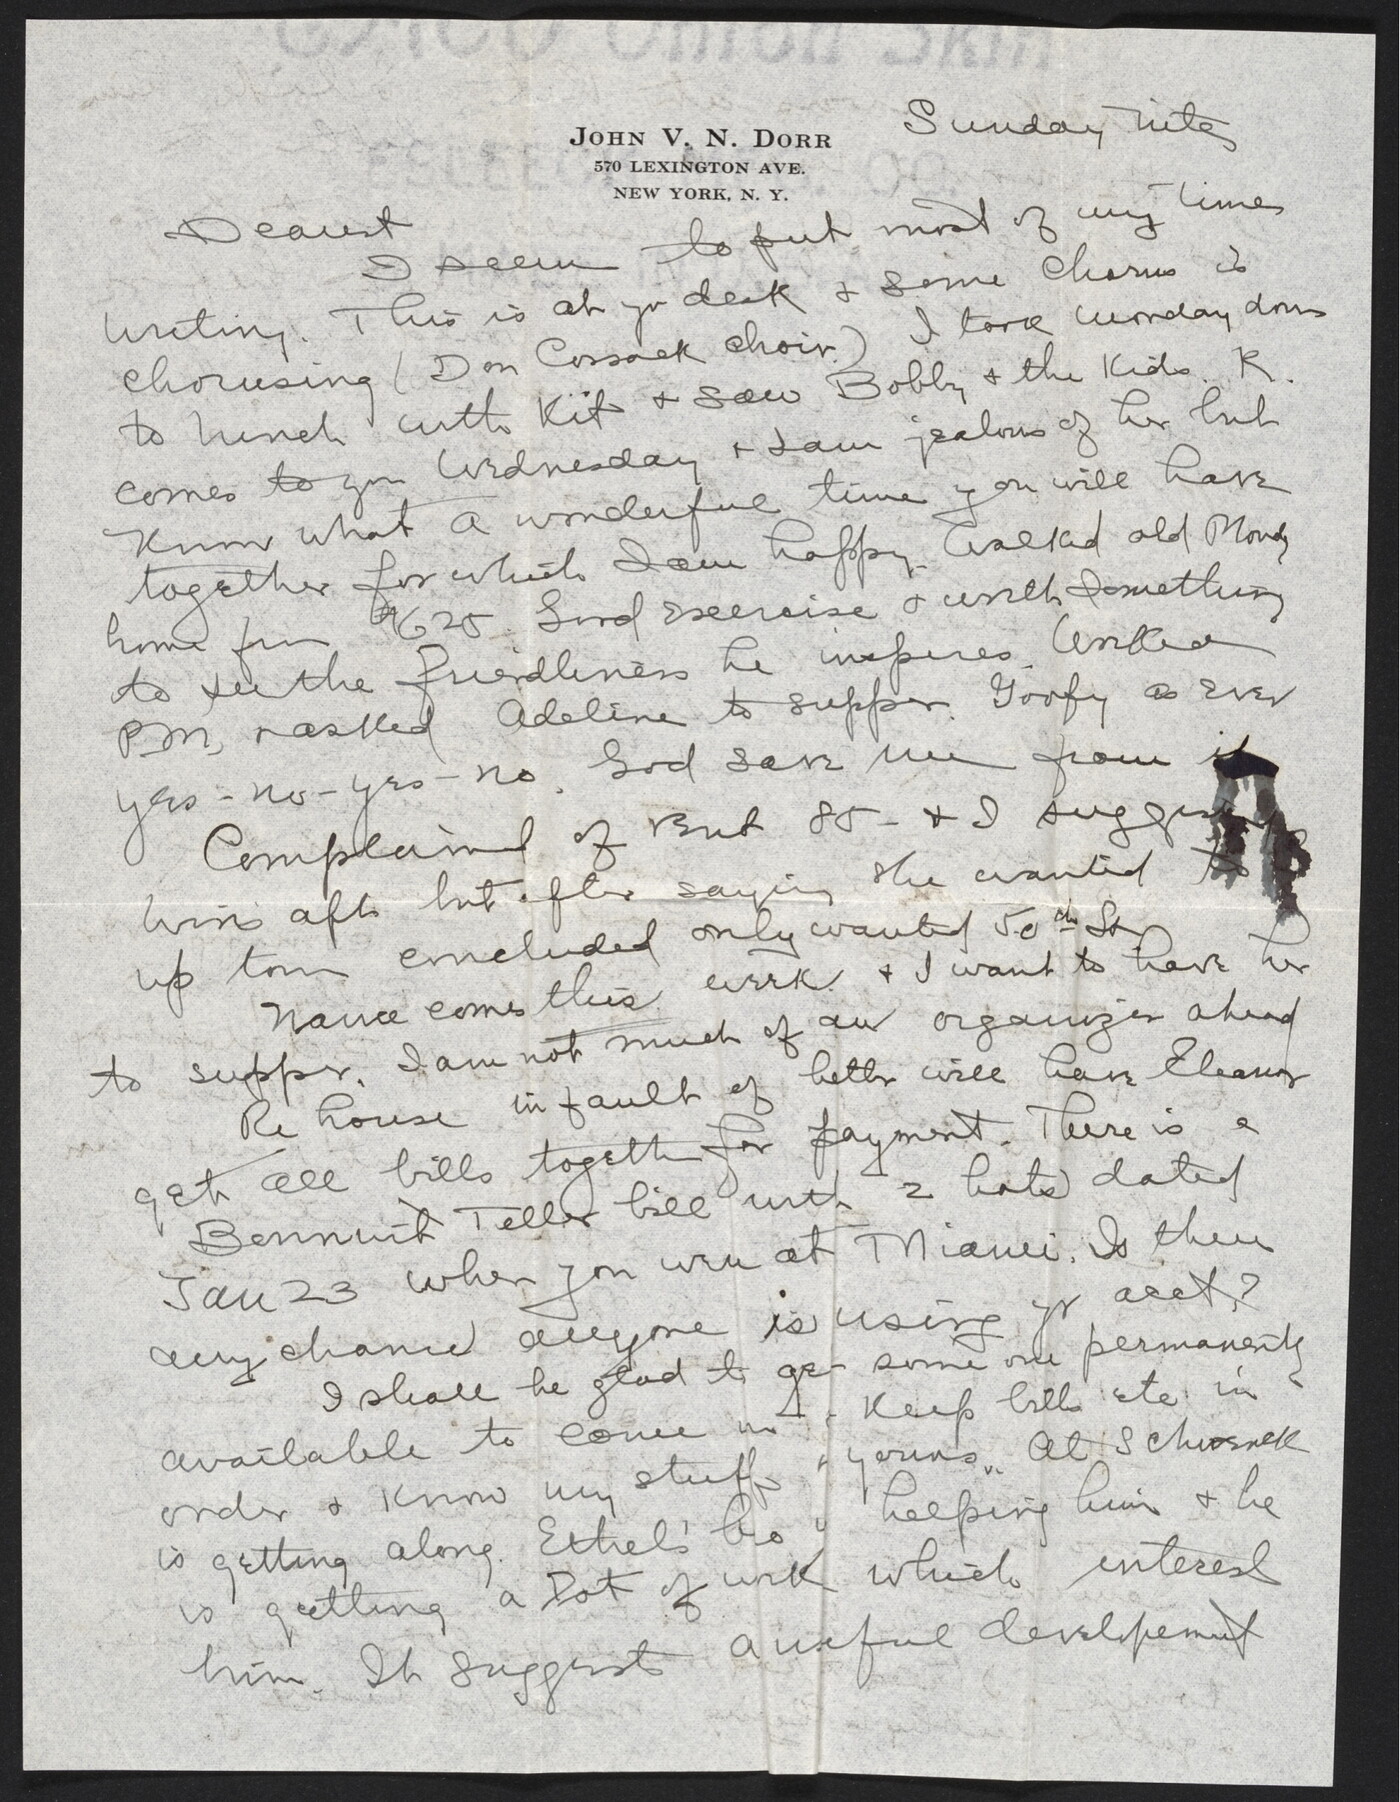 Sunday nite
JOHN V. N. DORR
570 LEXINGTON AVE.
NEW YORK, N. Y.
Dearest
I seem to put most of my time
writing. This is at yr desk & some chorus is
chorusing (Don Cossack choir) I took down
to lunch with Kit & saw Bobby & the Kids. K.
comes to you Wednesday & I am jealous of her but
Know what a wonderful time you will have
together for which I am happy. Walked old
home fm 625. Good exercise & worth something
to see the friendliness he inspires. Worked
PM, & asked Adeline to supper. Goofy as ever
yes - no - yes - no. God save me from it
Complained of 85 - & I
but after saying she wanted to
up town concluded only wanted 50th St
comes this week & I want to have her
to supper. I am not much of an organizer ahead
Re house in fault of better will have Eleanor
get all bills together for payment. There is a
Bonnwit Teller bill with 2 hats dated
Jan 23 when you were at Miami. Is there
any chance anyone is using yr acct.?
I shall be glad to get some one permanently
available to come in & Keep bills etc in
order & Know my stuff & yours. At Schwenck
is getting along. Ethel's bro is helping him & he
is getting a lot of work which interest
him. It suggests a useful developement